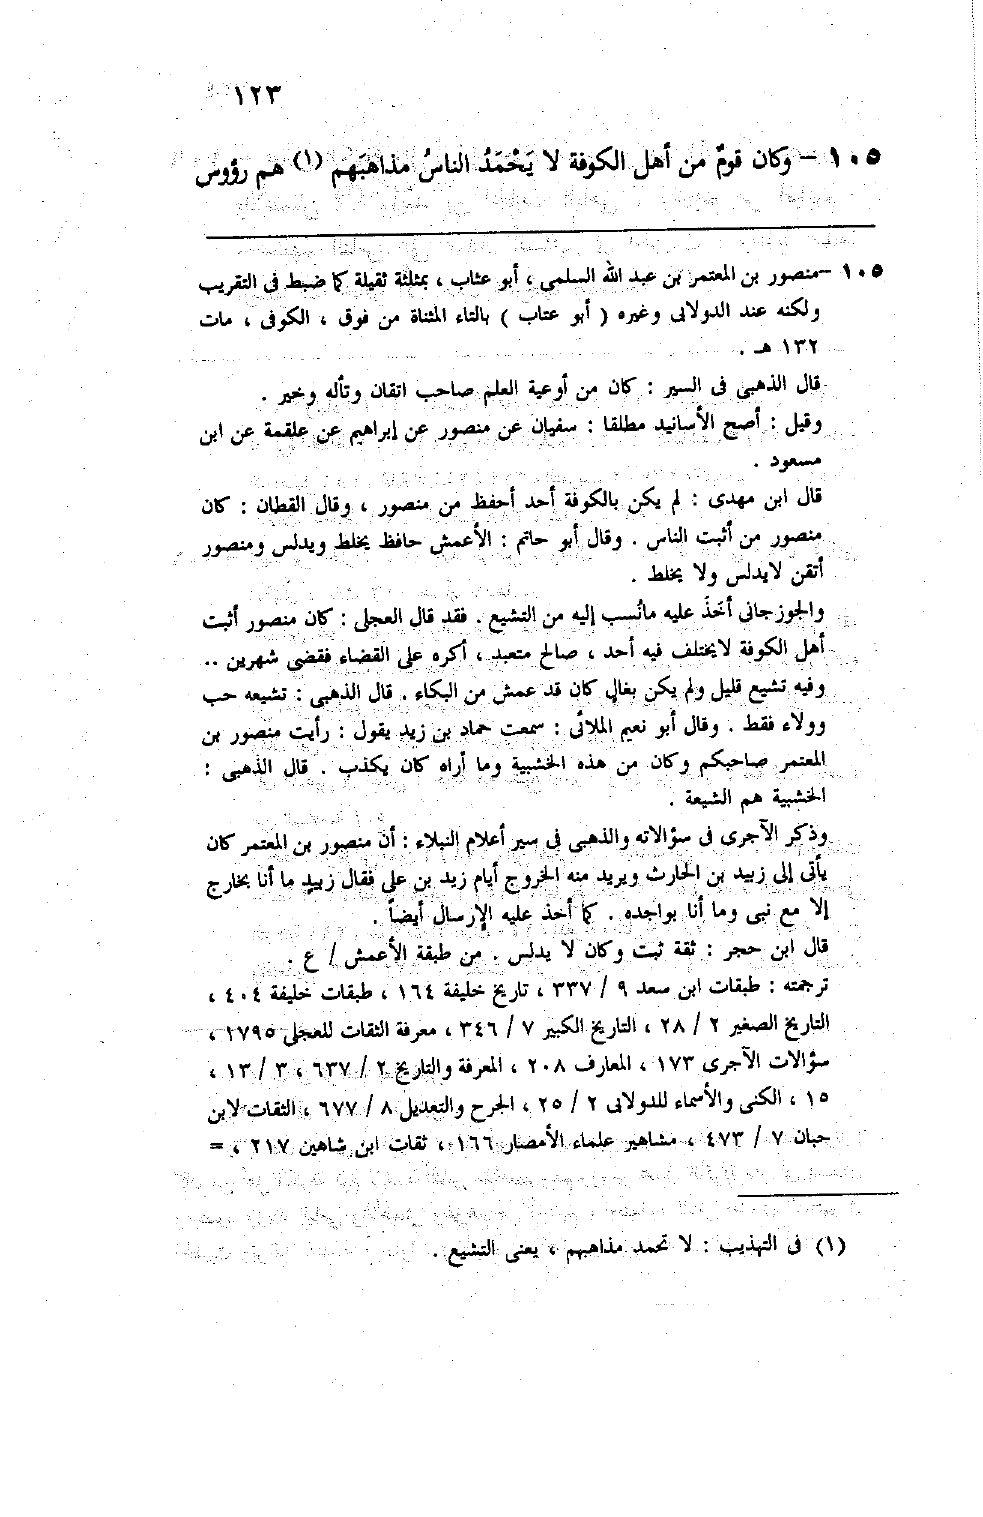 ١٢٣
١٠٥ – وكان قومٌ من أهل الكوفة لا يَحْمَدُ الناسُ مذاهبَهم (١) هم رؤوس
١٠٥ – منصور بن المعتمر بن عبد الله السلمى ، أبو عثاب ، بمثلثة ثقيلة كما ضبط فى التقريب
ولكنه عند الدولابى وغيره ( أبو عتاب ) بالتاء المثناة من فوق ، الكوفى ، مات
١٣٢ هـ .
قال الذهبى فى السير : كان من أوعية العلم صاحب اتقان وتأله وخير .
وقيل : أصح الأسانيد مطلقا : سفيان عن منصور عن إبراهيم عن علقمة عن ابن
مسعود .
قال ابن مهدى : لم يكن بالكوفة أحد أحفظ من منصور ، وقال القطان : كان
منصور من أثبت الناس . وقال أبو حاتم : الأعمش حافظ يخلط ويدلس ومنصور
أتقن لايدلس ولا يخلط .
والجوزجانى أخَذَ عليه مانُسب إليه من التشيع . فقد قال العجلى : كان منصور أثبت
أهل الكوفة لايختلف فيه أحد ، صالح متعبد ، أكره على القضاء فقضى شهرين ..
وفيه تشيع قليل ولم يكن بغالٍ كان قد عمش من البكاء . قال الذهبى : تشيعه حب
وولاء فقط . وقال أبو نعيم الملائى : سمعت حماد بن زيد يقول : رأيت منصور بن
المعتمر صاحبكم وكان من هذه الخشبية وما أراه كان يكذب . قال الذهبى :
الخشبية هم الشيعة .
وذكر الآجرى فى سؤالاته والذهبى فى سير أعلام النبلاء : أن منصور بن المعتمر كان
يأتى إلى زبيد بن الحارث ويريد منه الخروج أيام زيد بن على فقال زبيدٍ ما أنا بخارج
إلا مع نبى وما أنا بواجده . كما أخذ عليه الإرسال أيضاً .
قال ابن حجر : ثقة ثبت وكان لا يدلس . من طبقة الأعمش / ع .
ترجمته : طبقات ابن سعد ٩ / ٣٣٧ ، تاريخ خليفة ١٦٤ ، طبقات خليفة ٤٠٤ ،
التاريخ الصغير ٢ / ٢٨ ، التاريخ الكبير ٧ / ٣٤٦ ، معرفة الثقات للعجلى ١٧٩٥ ،
سؤالات الآجرى ١٧٣ ، المعارف ٢٠٨ ، المعرفة والتاريخ ٢ / ٦٣٧ ، ٣ / ١٣ ،
١٥ ، الكنى والأسماء للدولابى ٢ / ٢٥ ، الجرح والتعديل ٨ / ٦٧٧ ، الثقات لابن
حبان ٧ / ٤٧٣ ، مشاهير علماء الأمصار ١٦٦ ، ثقات ابن شاهين ٢١٧ ، =
(١) فى التهذيب : لا تحمد مذاهبهم ، يعنى التشيع .